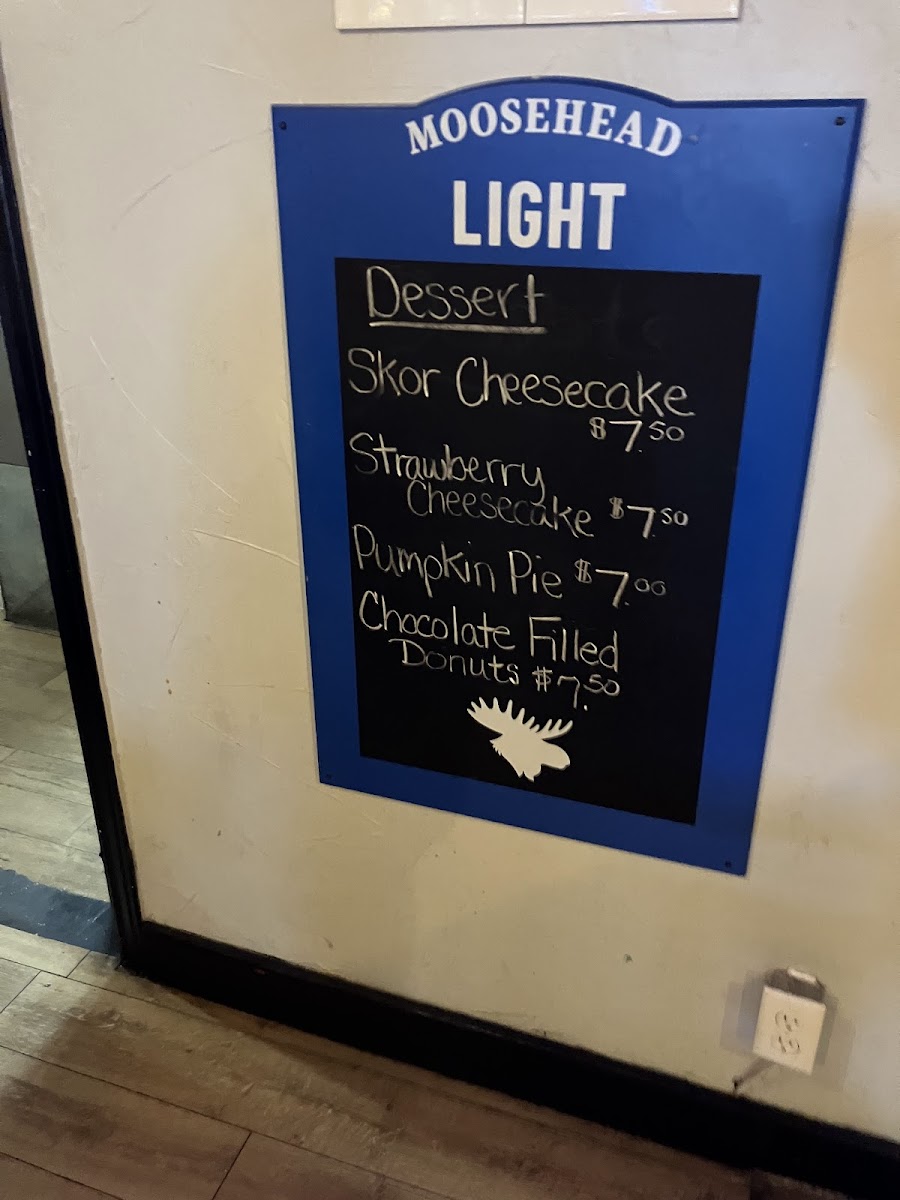 MOOSEHEAD
LIGHT
Dessert
Skor Cheesecake
$7.50
Strawberry
Cheesecake $7.50
Pumpkin Pie $7.00
Chocolate Filled
Donuts $7.50